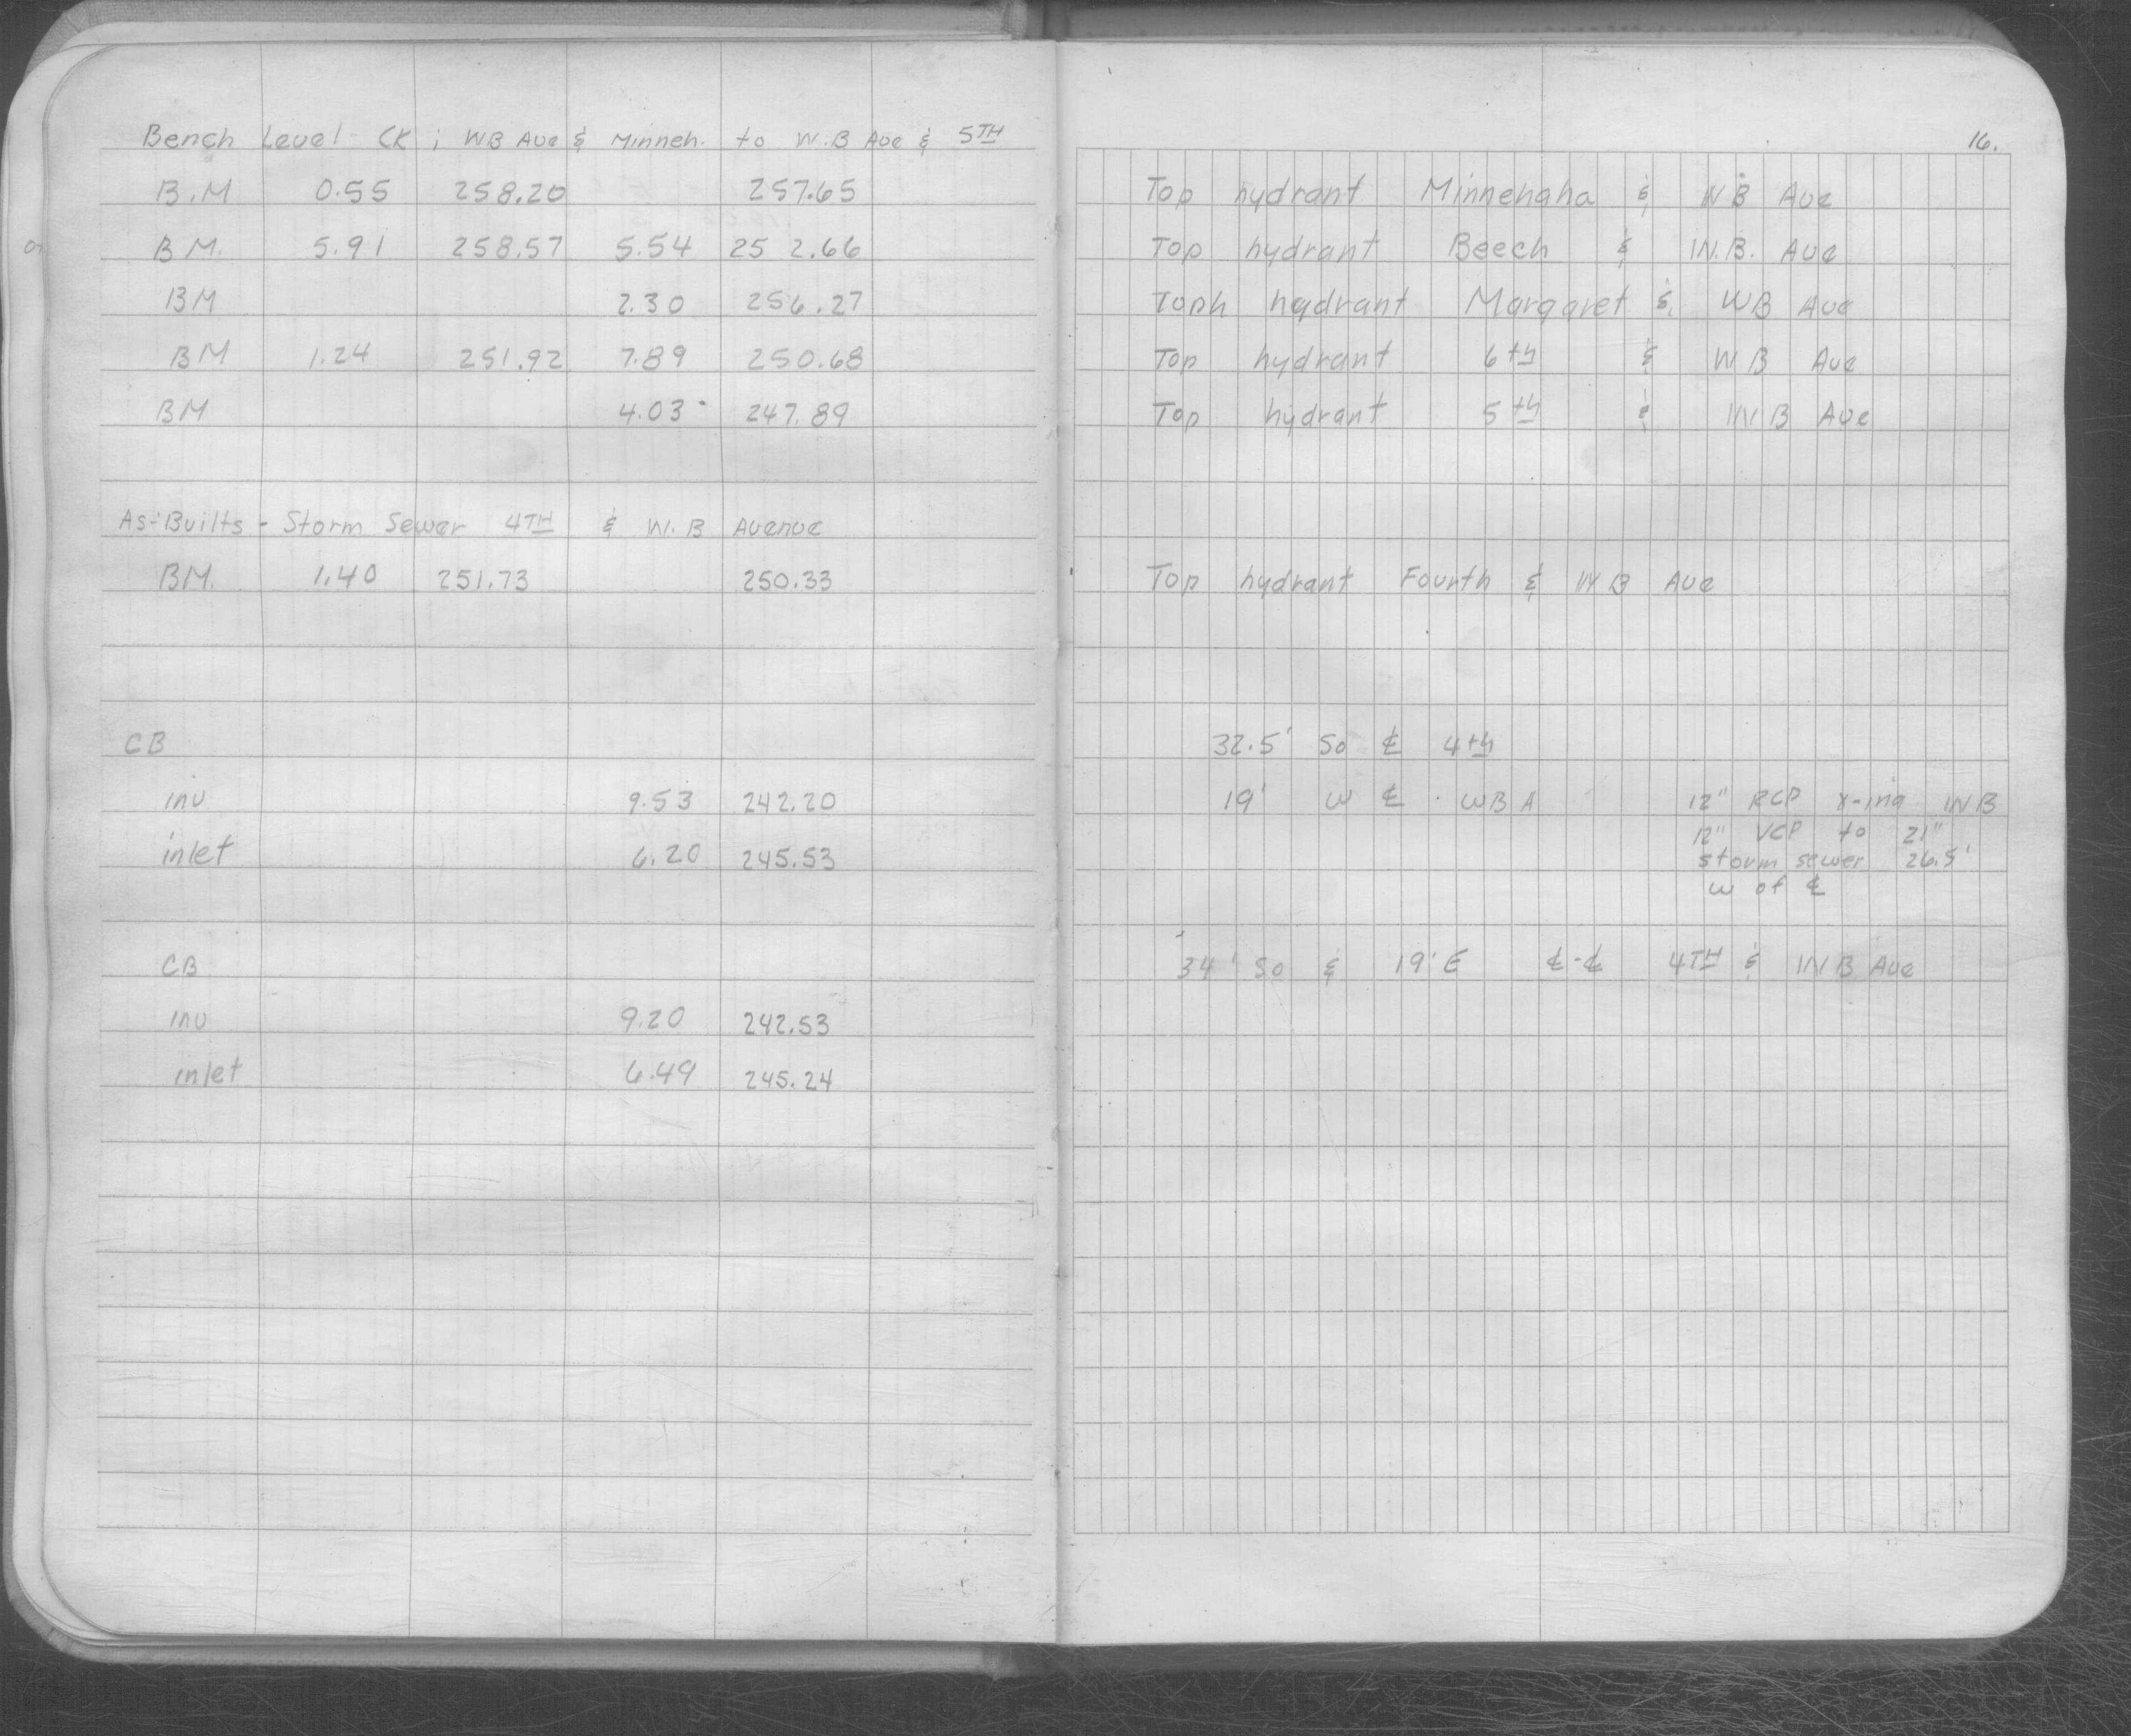 Bench Level CK ; WB Ave & Minneh. to W.B Ave & 5TH
B.M 0.55 258.20 257.65
BM. 5.91 258.57 5.54 252.66
BM 2.30 256.27
BM 1.24 251.92 7.89 250.68
BM 4.03 247.89
As-Builts - Storm Sewer 4TH & W.B Avenue
BM. 1.40 251.73 250.33
CB
inv 9.53 242.20
inlet 6.20 245.53
CB
inv 9.20 242.53
inlet 6.49 245.24
16.
Top hydrant Minnehaha & W B Ave
Top hydrant Beech & W.B. Ave
Toph hydrant Margaret & WB Ave
Top hydrant 6th & W B Ave
Top hydrant 5th & W B Ave
Top hydrant Fourth & W B Ave
32.5' So ℄ 4th
19' W ℄ WB A 12" RCP x-ing WB
12" VCP to 21"
storm sewer 26.5'
w of ℄
34' So & 19' E ℄-℄ 4TH & W B Ave